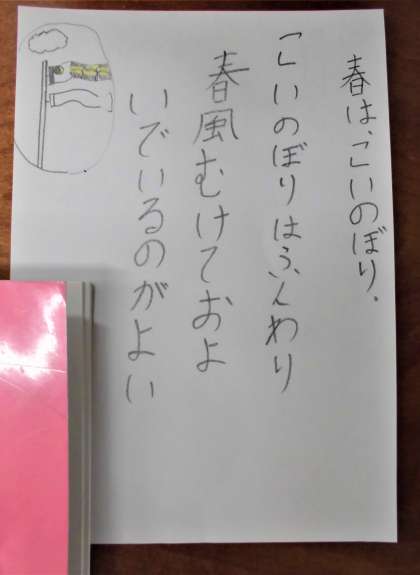 春は、こいのぼり.
こいのぼりはふんわり
春風むけておよ
いでいるのがよい